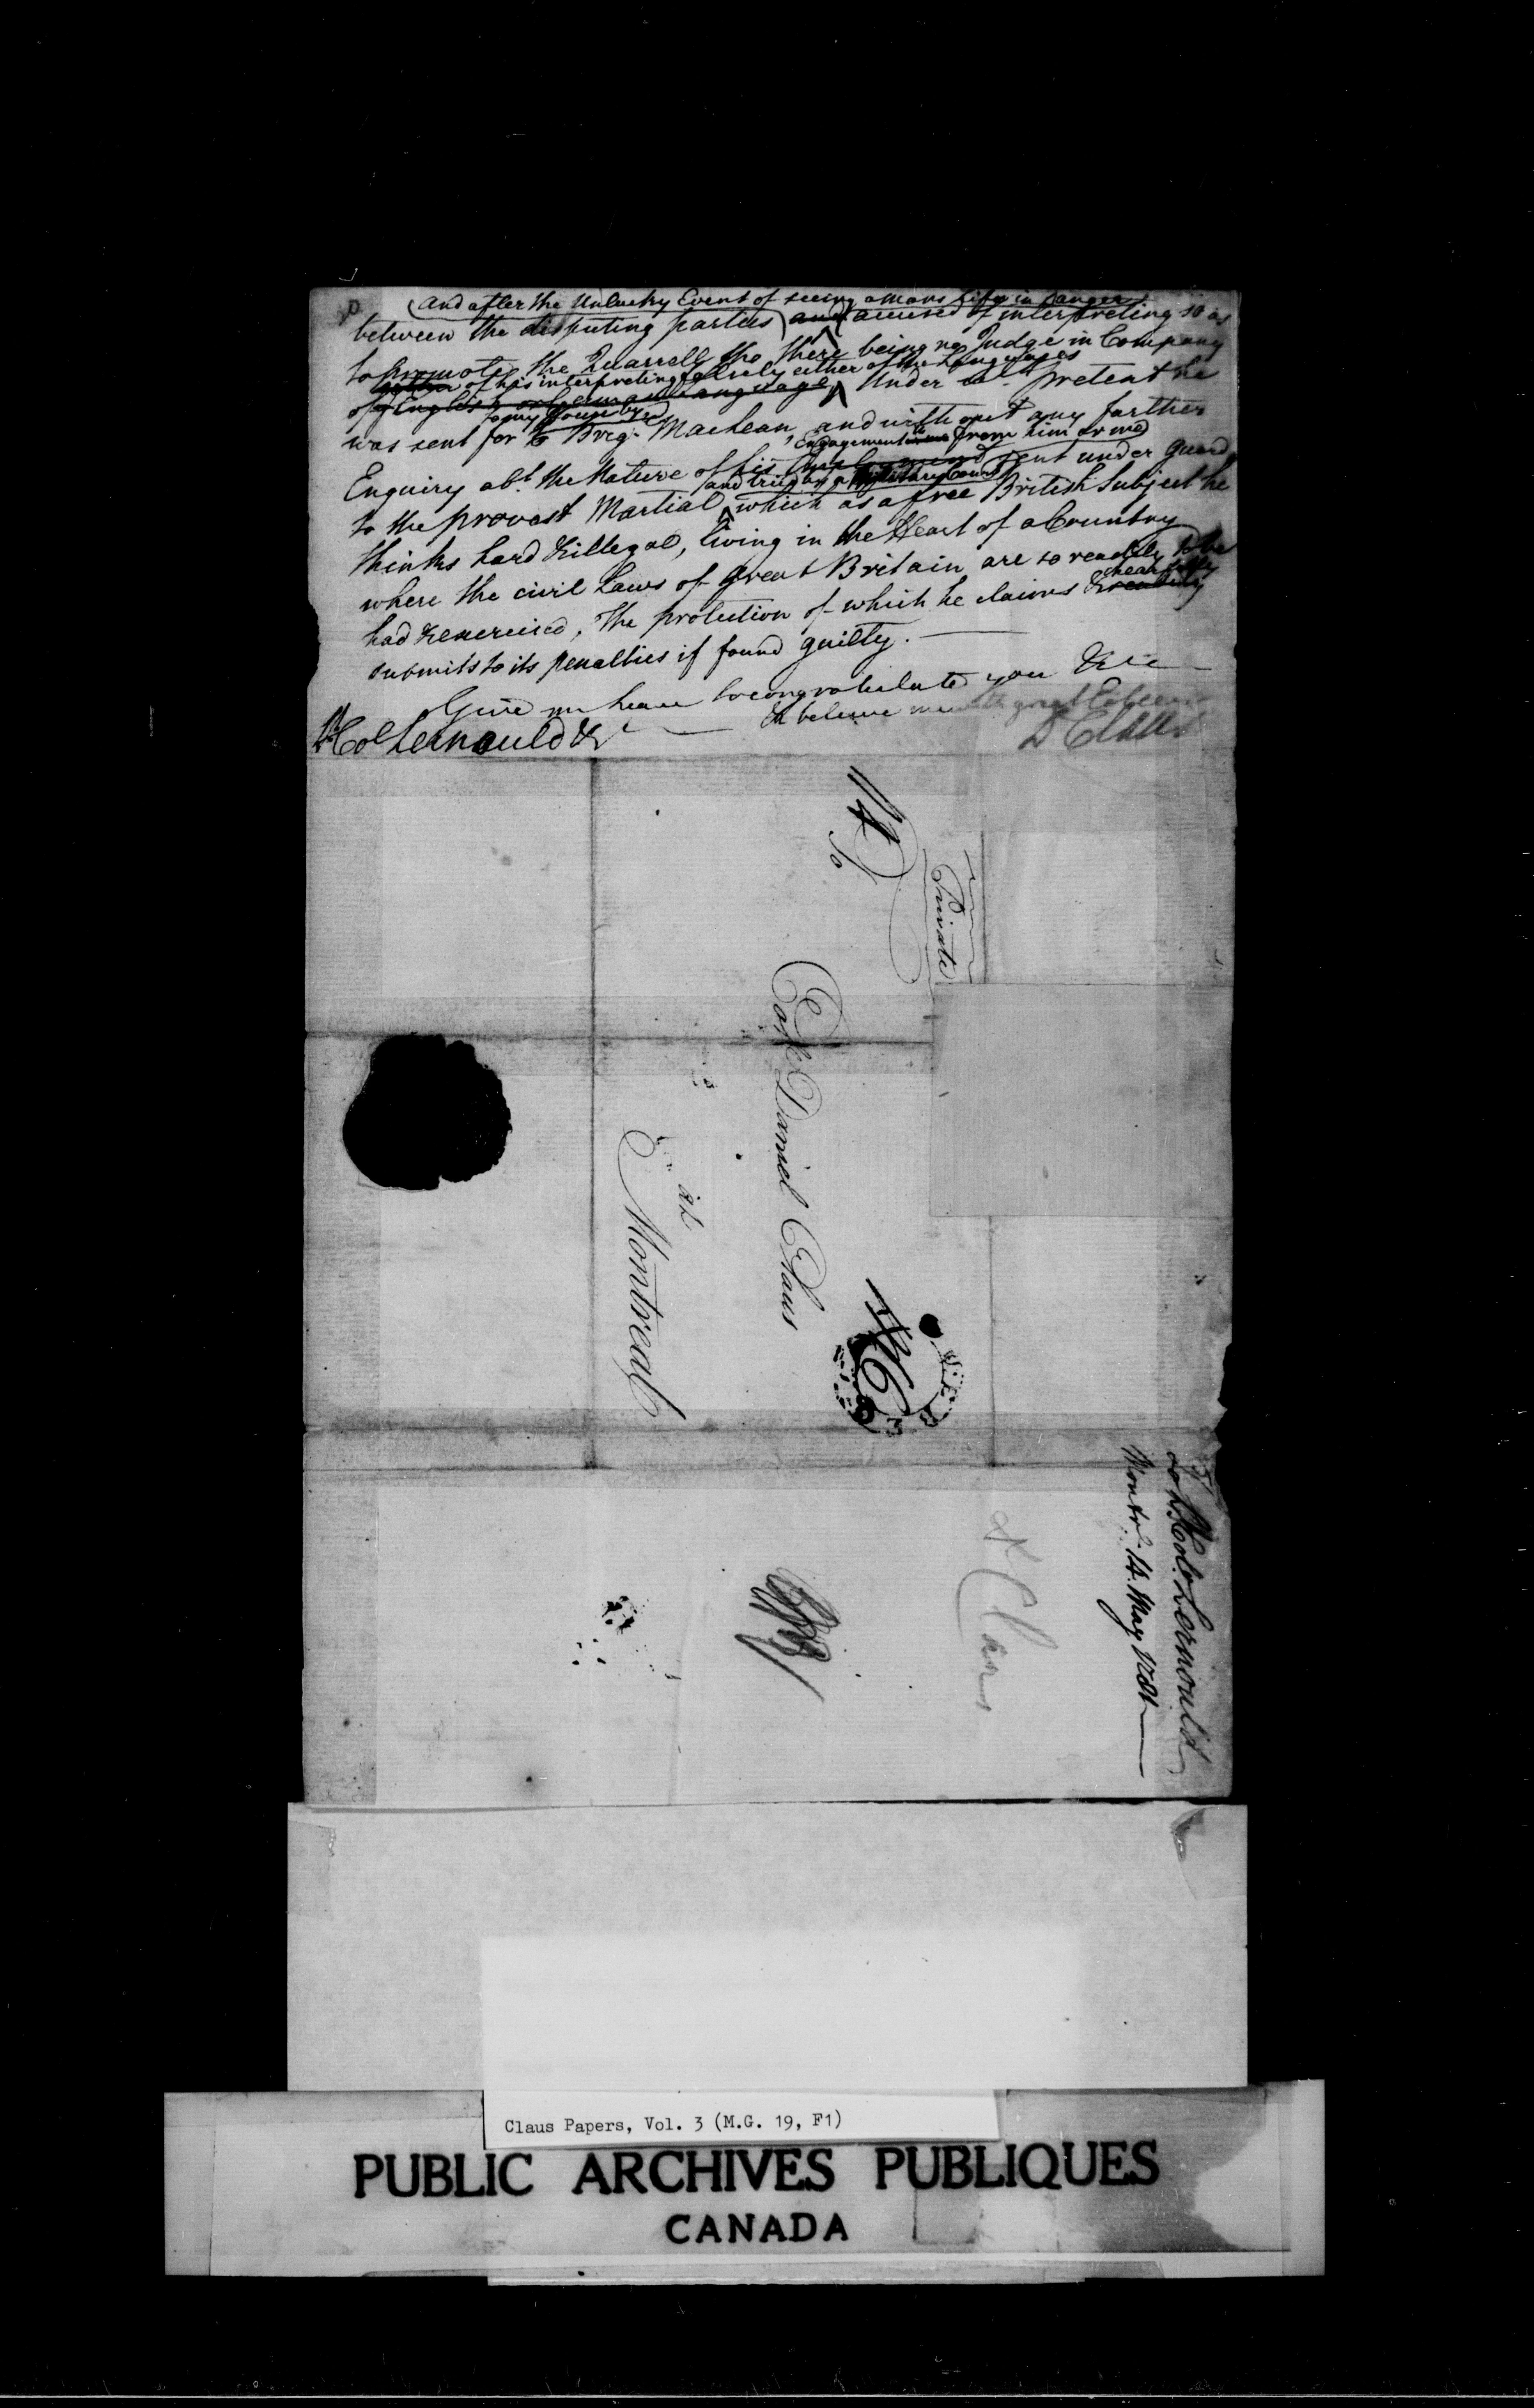 20
(and after the Unlucky Event of seeing a mans life in danger)
between the disputing parties and accused of interpreting so as
to promote the Quarrell, tho there being no Judge in Company
of his interpreting falsely either of the Languages
of English or German Language, Under wch. pretent he
to my House by a
was sent for to Brigr. Maclean, and without any further
Engagement from him or me
Enquiry abt. the Nature of his sent under guard
and tried by a Military Court
to the provost Martial, which as a free British Subject he
thinks hard & illegal, living in the Heart of a Country
where the civil Laws of Great Britain are so readily to be
had & exercised, The protection of which he claims & readily
chearfully
submits to its penalties if found guilty.
Give me leave to congratulate you &c
& believe me with great Esteem
Lt. Col Lernould &c
D Claus
Private
Col. Daniel Claus
at
Montreal
To Lt. Col. Lernould
Montr. 14. May 1781
D Claus
Claus Papers, Vol. 3 (M.G. 19, F1)
PUBLIC ARCHIVES PUBLIQUES
CANADA